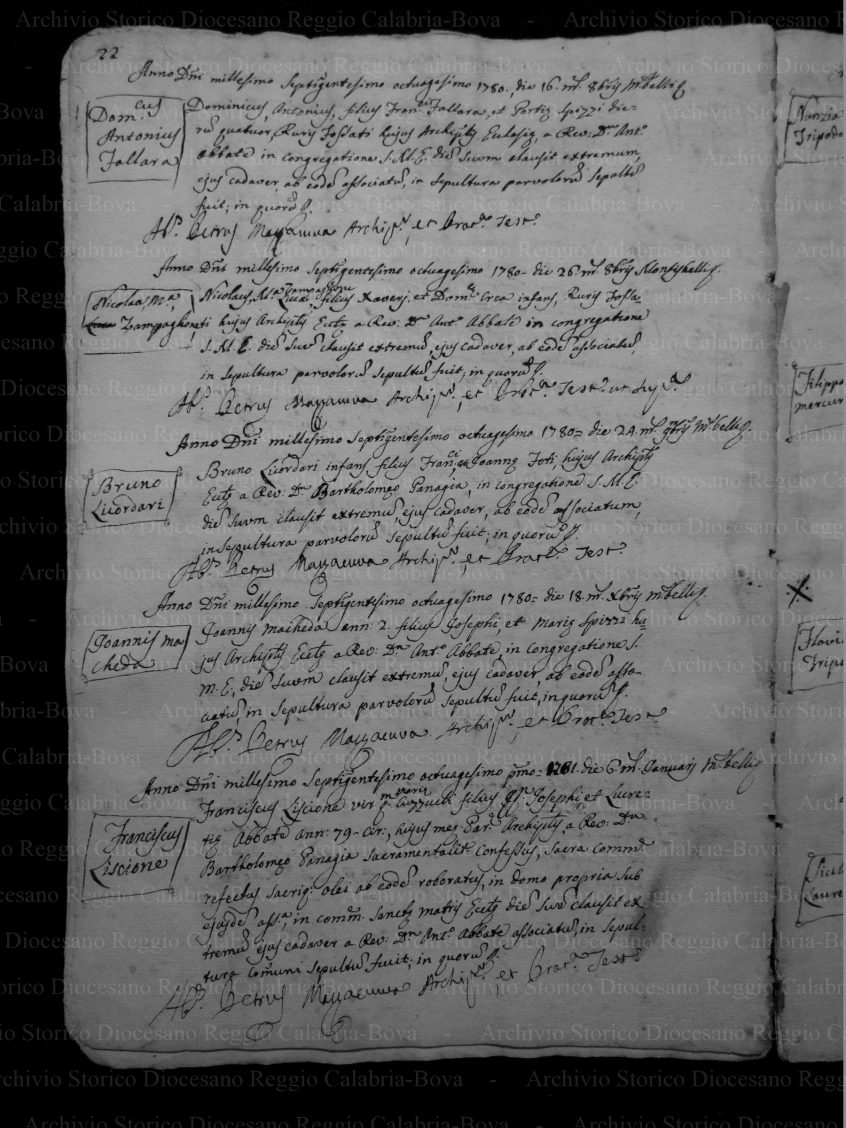 22
Anno Dñi millesimo Septigentesimo octuagesimo 1780, die 16 mẽ 8bris
Dom.cus Antonius Fallara
Dominicus, Antonius, filius Fran.ci Fallara, et Portię Spizzi die=
rũ quatuor, Ruris Fossati hujus Archip.tis Ecclesię, a Rev: D.no Ant.o
Abbate in congregatione S.M.E. diẽ Suum clausit extremum,
ejus cadaver, ab eodẽ associatũ, in Sepultura parvolorũ Sepultũ
fuit; in quorũ
Ab.s Petrus Mazzacuva Archip.r, et Prot.s Test.r
Anno Dñi millesimo Septigentesimo octuagesimo 1780 die 26 mẽ 8bris
Nicolaus M.a Zampaghoneti
Nicolaus, M.a filius Xaverj, et Dom.cę Crea infans, Ruris Fossa=
ti hujus Archip.tis Eccl.ę a Rev: D.no Ant.o Abbate in congregatione
S.M.E. diẽ Suũ clausit extremũ, ejus cadaver, ab eodẽ associatũ,
in Sepultura parvolorũ Sepultũ fuit; in quorũ
Ab.s Petrus Mazzacuva Archip.r, et Prot.s Test.r ut Sup.a
Anno Dñi millesimo Septigentesimo octuagesimo 1780= die 24 mẽ 9bris
Bruno Licordari
Bruno Licordari infans, filius Fran.ci et Joannę Foti, hujus Archip.tis
Eccl.ę a Rev: D.no Bartholomęo Panagia, in congregatione S.M.E.
diẽ Suum clausit extremũ, ejus cadaver, ab eodẽ associatum,
in Sepultura parvolorũ Sepultũ fuit; in quorũ
Ab.s Petrus Mazzacuva Archip.r, et Prot.s Test.r
Anno Dñi millesimo Septigentesimo octuagesimo 1780= die 18 mẽ Xbris
Joannis macheda
Joannis macheda ann: 2. filius Josephi, et Marię Spizzi hu=
jus Archip.tis Eccl.ę a Rev: D.no Ant.o Abbate, in congregatione S.
M.E, diẽ Suum clausit extremũ, ejus cadaver, ab eodẽ asso=
ciatũ, in Sepultura parvolorũ Sepultũ fuit, in quorũ
Ab.s Petrus Mazzacuva Archip.r, et Prot.s Test.r
Anno Dñi millesimo Septigentesimo octuagesimo pmo= 1781. die 6 mẽ Januarij
Franciscus Liscione
Franciscus Liscione vir filius Josephi, et Lucre=
tię Abbate ann: 79 cir: hujus meę Par: Archip.tis a Rev: D.no
Bartholomęo Panagia Sacramentalit.r confessus, Sacra comm.e
refectus sacriq: olei ab eodẽ roboratus, in domo propria Sub
ejusdẽ ass.a, in comm. Sanctę matris Eccl.ę diẽ Suũ clausit ex
tremũ, ejus cadaver a Rev: D.no Ant.o Abbate associatũ, in Sepul=
tura Comuni Sepultũ fuit; in quorũ
Ab.s Petrus Mazzacuva Archip.r, et Prot.s Test.r
Nunzia
Tripodo
Filippo
mercur
Flavi
Tripo
Laure
Archivio Storico Diocesano Reggio Calabria-Bova